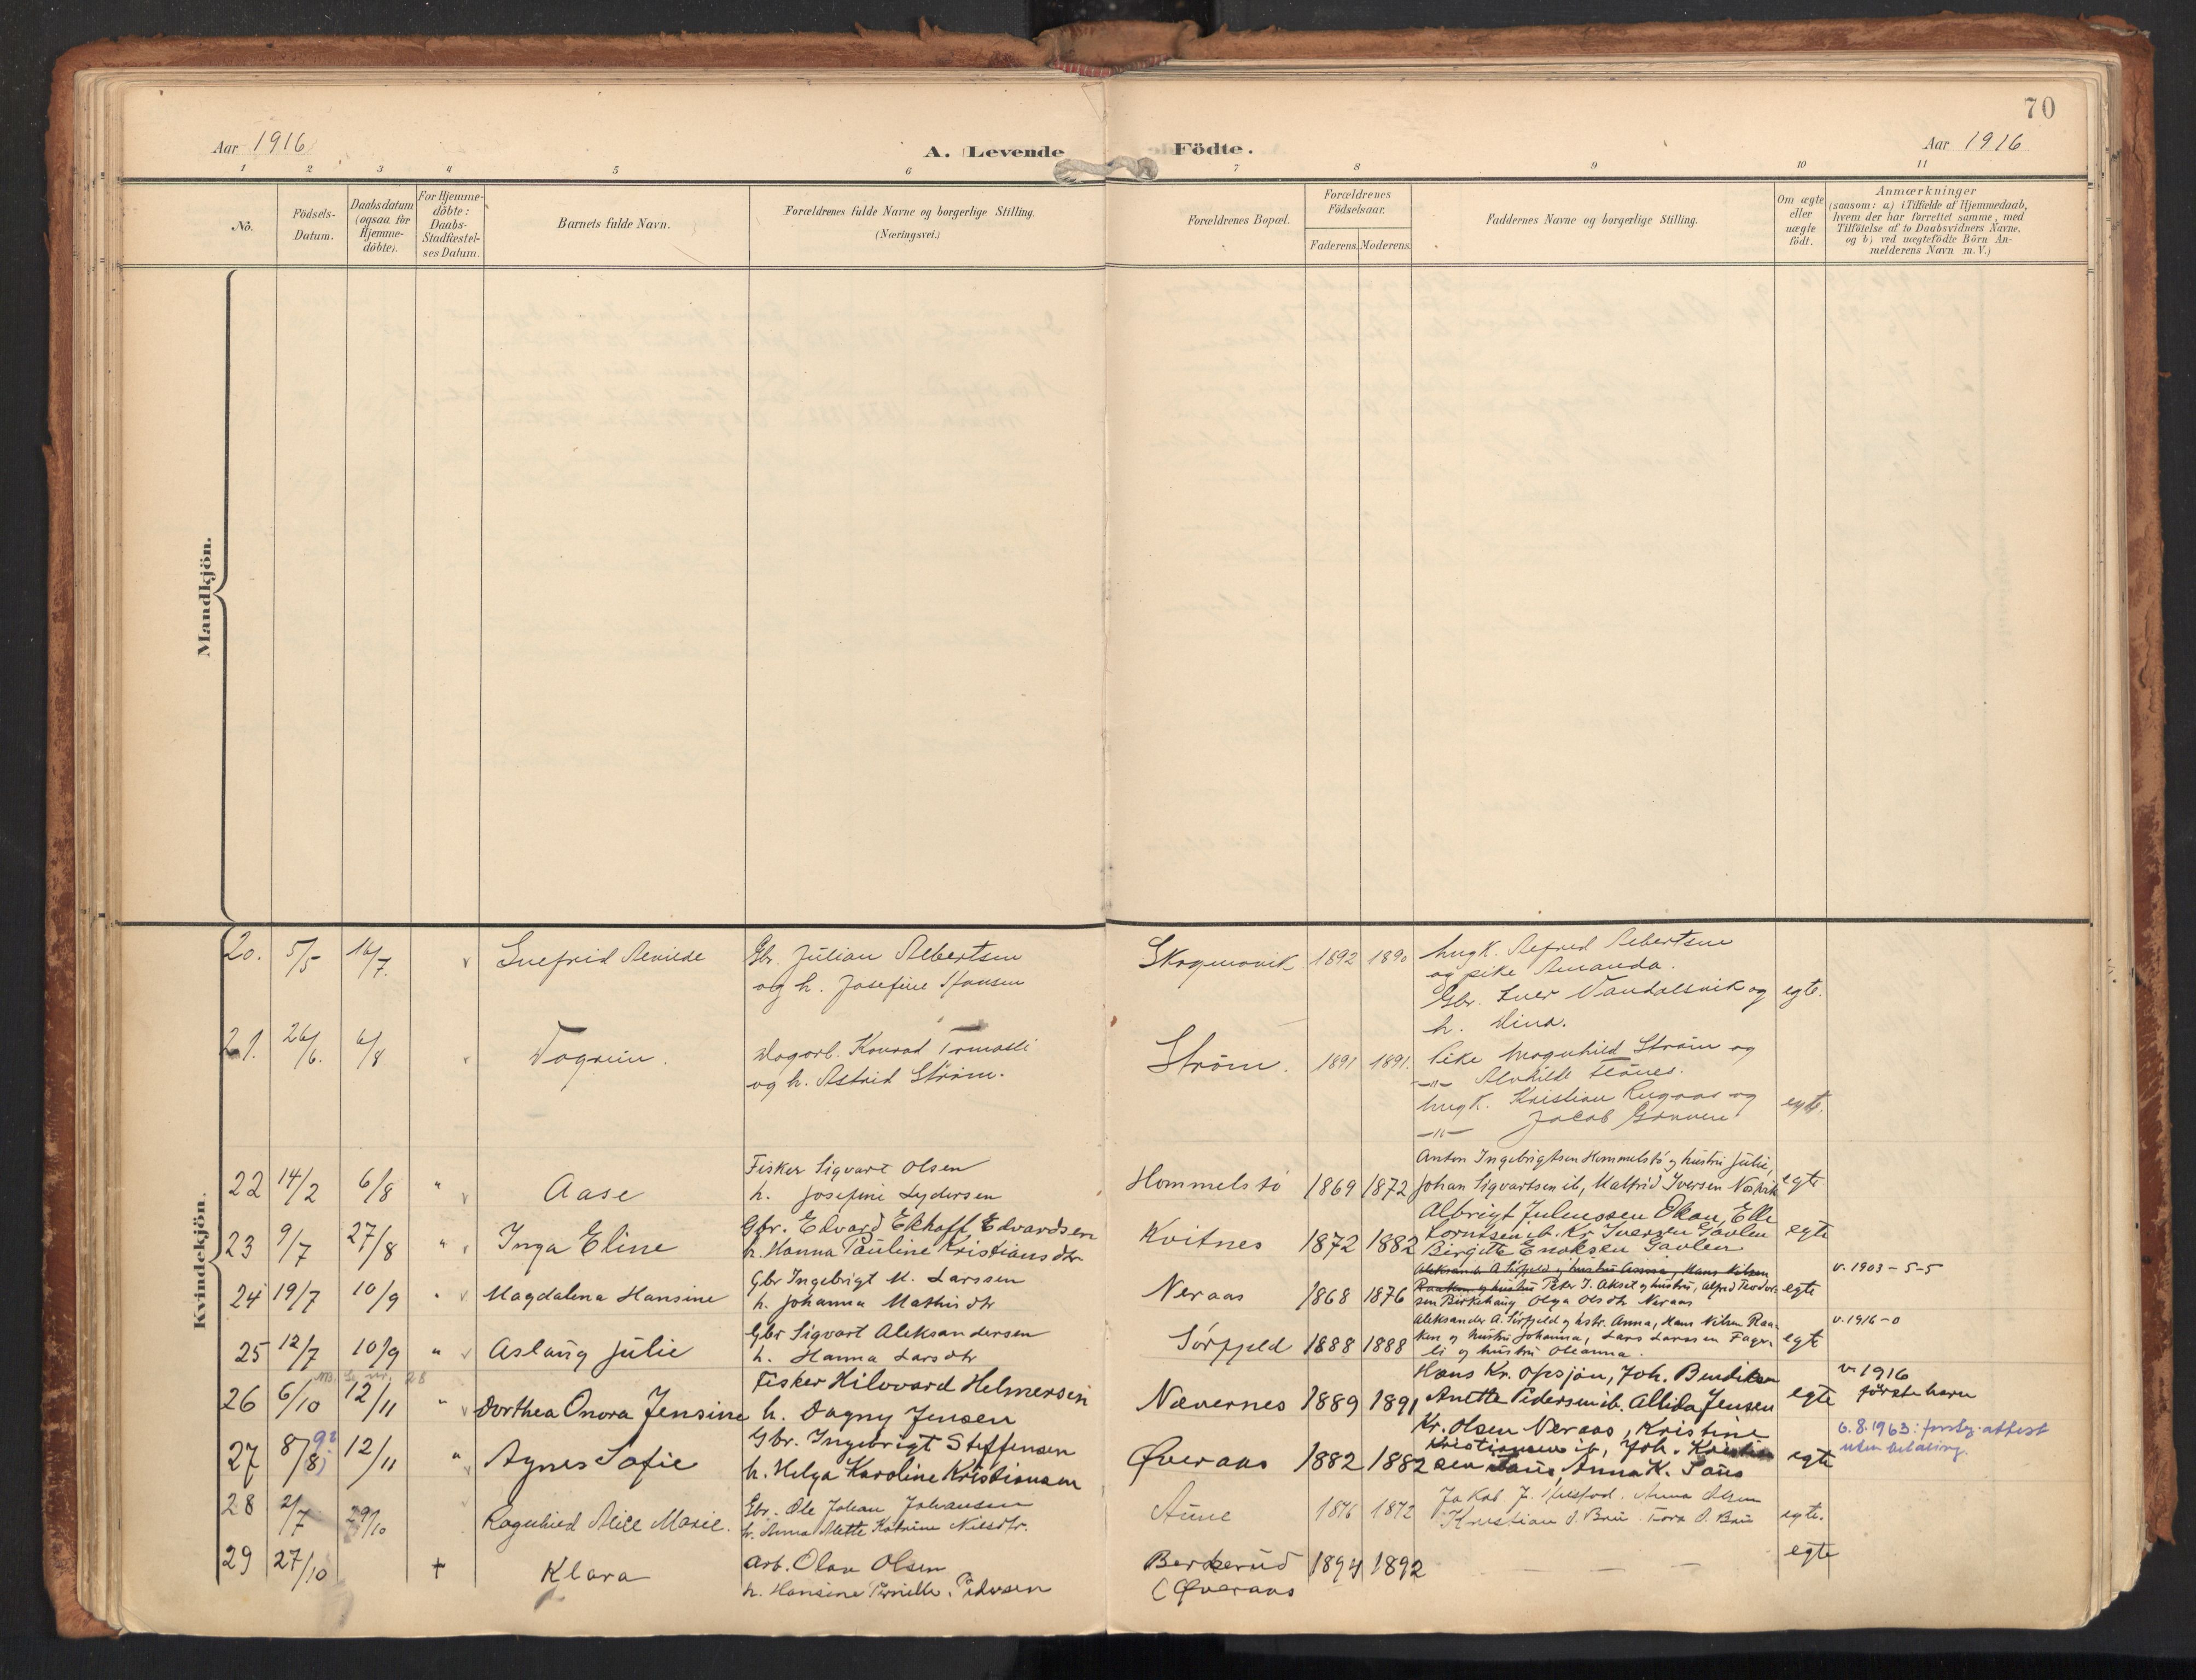 70
Aar 1916
A. Levende
Födte.
Aar 1916
1 2 3 4 5 6 7 8 9 10 11
No.
Födsels-
Datum.
Daabsdatum
(ogsaa for
Hjemme-
döbte).
For Hjemme-
döbte:
Daabs-
Stadfæstel-
ses Datum.
Barnets fulde Navn.
Forældrenes fulde Navne og borgerlige Stilling.
(Næringsvei.)
Forældrenes Bopæl.
Forældrenes
Födselsaar.
Faderens. Moderens.
Faddernes Navne og borgerlige Stilling.
Om ægte
eller
uægte
födt.
Anmærkninger
(saasom: a) i Tilfælde af Hjemmedaab,
hvem der har forrettet samme, med
Tilföielse af to Daabsvidners Navne,
og b) ved uægtefödte Börn An-
melderens Navn m.V.)
Mandkjön.
Kvindekjön.
20. 5/5 16/7 Gbr. Julian Albertsen Skogmovik 1892 1890 Ungk. Alfred Albertsen
og h. Josefine Hansen og pike Amanda.
Gbr. Iver Vandalsvik og egte.
h. Dina.
21. 26/6 6/8 Dagrun. Dagarb. Konrad og h. Astrid Ström. Ström. 1891 1891. Pike Magnhild Ström og
-"- Alvhilde
Ungk. Kristian og egte.
-"- Jacob
22 14/2 6/8 " Aase Fisker Sigvart Olsen Hommelstö 1869 1872 Anton Ingebrigtsen Hommelstö og hustru Julie,
h. Josefine Lydersen Johan Sigvartsen ib, Malfrid Iversen egte
23 9/7 27/8 " Inga Eline Gbr. Edvard Ekhoff Edvardsen Kvitnes 1872 1882 Albrigt Juliussen Elle
h. Hanna Pauline Kristiansdtr Lorntsen ib. Kr. Iversen egte
Birgitte Enoksen
24 19/7 10/9 " Magdalena Hansine Gbr Ingebrigt M. Larssen Neraas 1868 1876 Aleksander A. Sörfjeld og hustru Anna, Hans Nilsen v. 1903-5-5
h. Johanna Mathisdtr Raaken og hustru Peter J. Akset og hustru, Alfred Teodor- egte
sen Birkehaug Olga Olsdtr Neraas
25 12/7 10/9 " Aslaug Julie Gbr Sigvart Aleksandersen Sörfjeld 1888 1888 Aleksander A. Sörfjeld og hstr. Anna, Hans Nilsen Raa- v. 1916-0
h. Hanna Larsdtr ken og hustru Johanna, Lars Larssen Fager- egt
li og hustru Oleanna.
NB. Se nr. 28
26 6/10 12/11 " Dorthea Onora Jensine Fisker Hilvard Helmersen Nævernes 1889 1891 Hans Kr. Opsjön, Joh. Bendiksen v. 1916
h. Dagny Jensen Anette Pedersen ib. Allida Jensen egte förste barn
27 8/8 12/11 " Agnes Sofie Gbr. Ingebrigt Steffensen Øveraas 1882 1882 Kr. Olsen Neraas, Kristine 6.8.1963: attest
h. Helga Karoline Kristiansen Kristiansen ib, Joh. Kristian- uten betaling.
sen Saus, Anna K. Saus egte
28 2/7 29/10 Ragnhild Alice Marie. Gbr. Ole Johan Johansen Aune 1876 1872 Jakob J. Anna Olsen
h. Anna Mette Katrine Nilsdtr. Kristian O. Brü Tora O. Brü egte.
29 27/10 + Klara Arb. Olav Olsen Berkerud 1894 1892 — — — egte
h. Hansine Pernille Pedersen (Øveraas